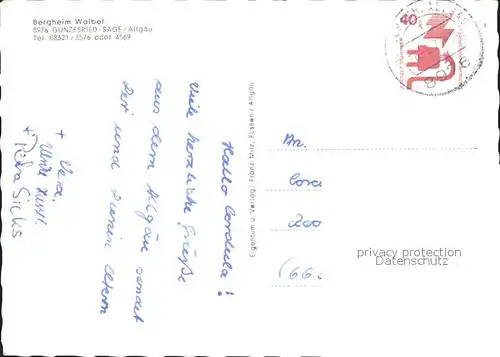 Bergheim Waibel
8976 GUNZESRIED - SAGE / Allgäu
Tel. 08321 / 3576 oder 4569
40
Hallo Cordula!
Viele herzliche Grüße
aus dem Allgäu sendet
Dir und Deinen Eltern
+ Vera,
+ Petra Sicks
Eigentum u. Verlag: Franz Milz, Füssen / Allgäu
An
privacy protection
Datenschutz